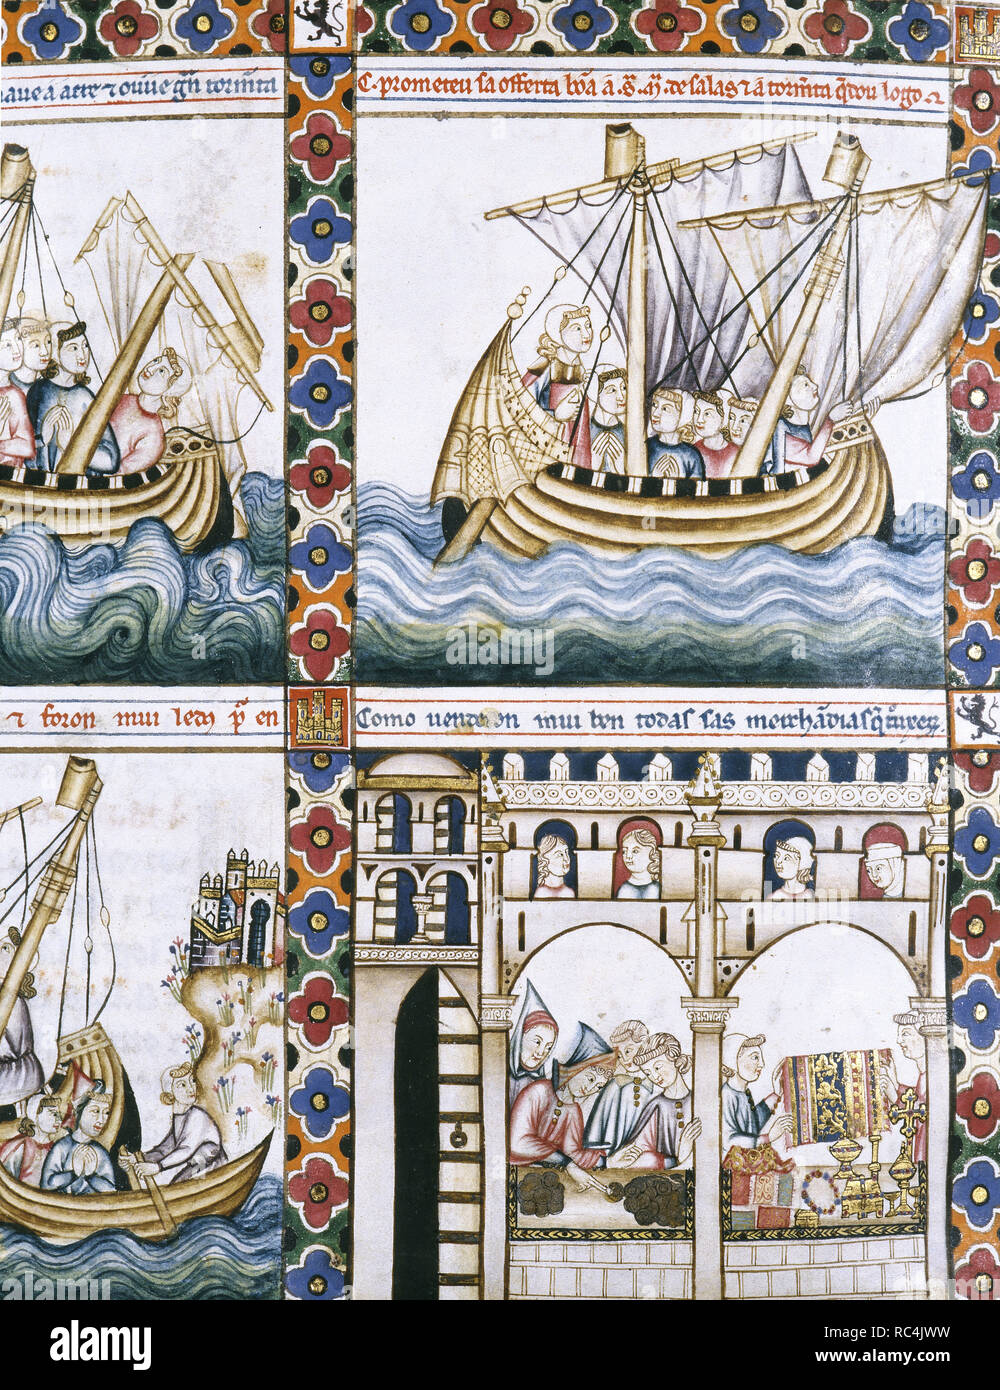 naue a acre τ ouue grã tormẽta
C. prometeu sa offerta bõa a. S. M. de salas τ a tormẽta q̃dou logo. τ
τ foron mui ledos pera en
Como uenderon mui ben todas sas merchãdias
a
alamy
alamy
a
a
alamy
a
a
alamy
Image ID: RC4JWW
www.alamy.com